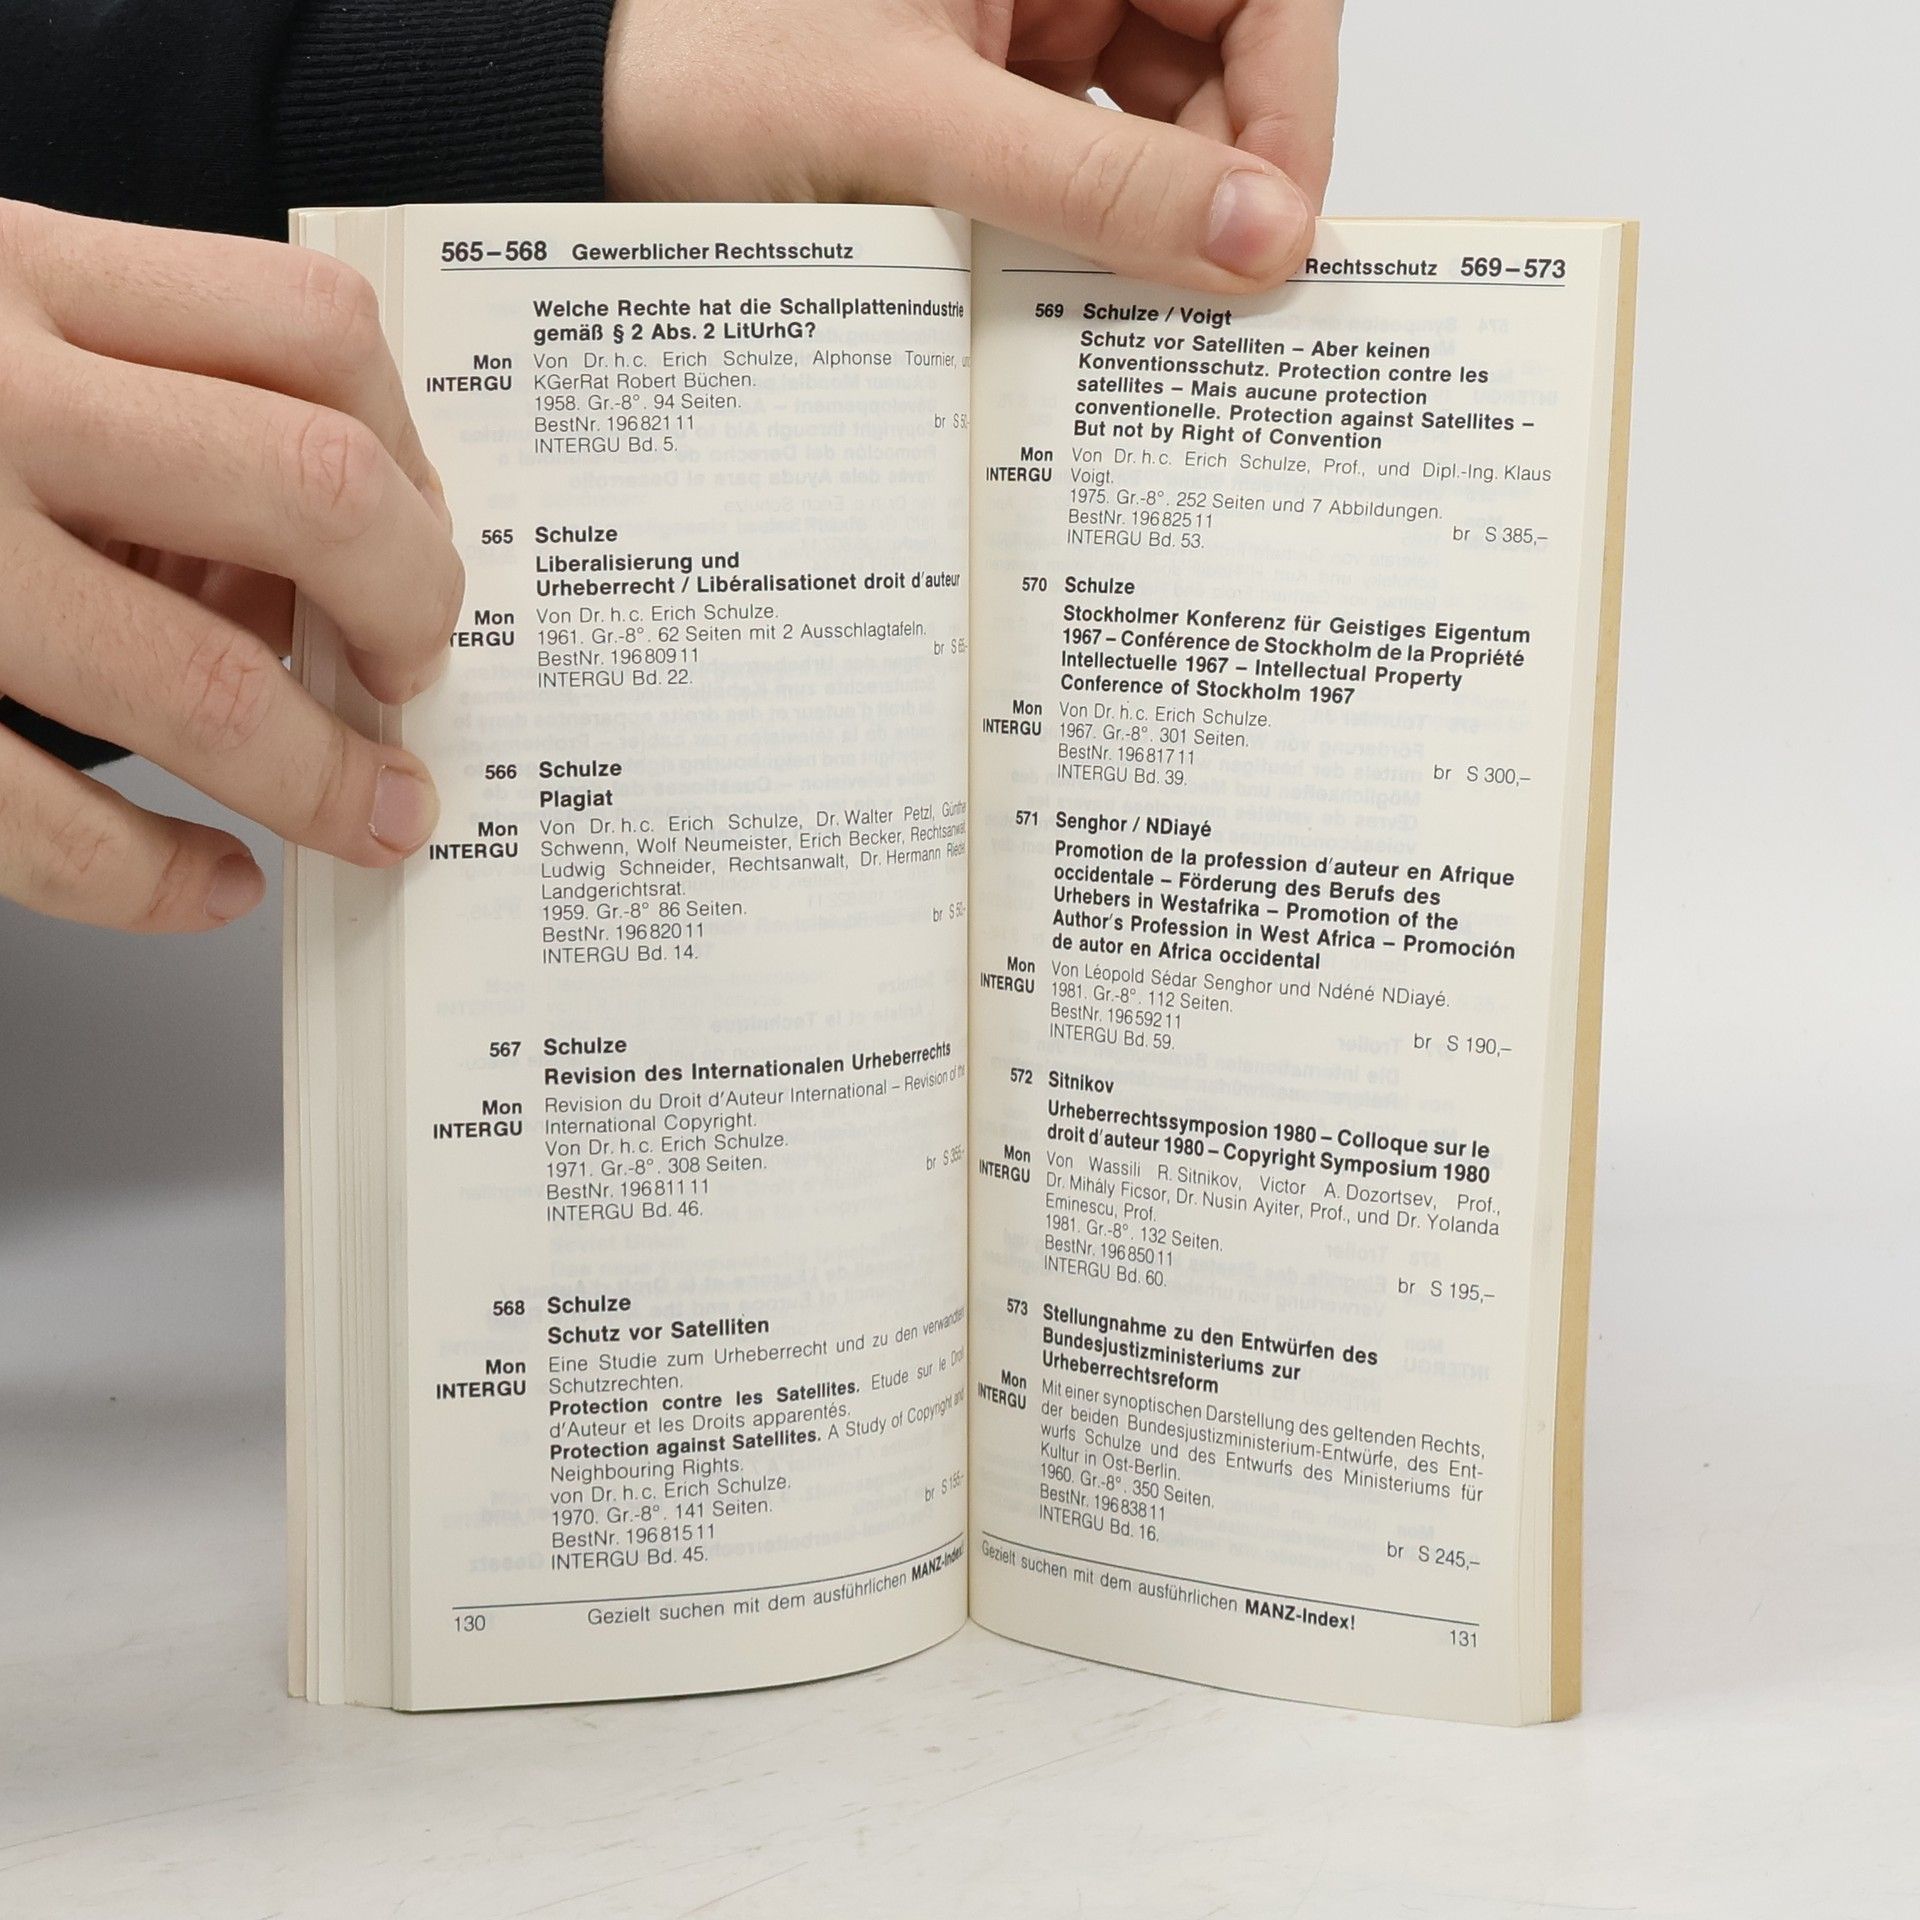 565–568 Gewerblicher Rechtsschutz
Welche Rechte hat die Schallplattenindustrie
gemäß § 2 Abs. 2 LitUrhG?
Mon Von Dr. h. c. Erich Schulze, Alphonse Tournier,
INTERGU KGerRat Robert Büchen.
1958. Gr.-8°. 94 Seiten.
BestNr. 196 821 11 br S 50,-
INTERGU Bd. 5.
565 Schulze
Liberalisierung und
Urheberrecht / Libéralisationet droit d'auteur
Mon Von Dr. h. c. Erich Schulze.
TERGU 1961. Gr.-8°. 62 Seiten mit 2 Ausschlagtafeln.
BestNr. 196 809 11 br S 65,-
INTERGU Bd. 22.
566 Schulze
Plagiat
Mon Von Dr. h. c. Erich Schulze, Dr. Walter Petzl, Günther
INTERGU Schwenn, Wolf Neumeister, Erich Becker, Rechtsanwalt,
Ludwig Schneider, Rechtsanwalt, Dr. Hermann Riedel,
Landgerichtsrat.
1959. Gr.-8° 86 Seiten.
BestNr. 196 820 11 br S 50,-
INTERGU Bd. 14.
567 Schulze
Revision des Internationalen Urheberrechts
Mon Revision du Droit d'Auteur International – Revision of the
INTERGU International Copyright.
Von Dr. h. c. Erich Schulze.
1971. Gr.-8°. 308 Seiten.
BestNr. 196 811 11 br S 355,-
INTERGU Bd. 46.
568 Schulze
Schutz vor Satelliten
Mon Eine Studie zum Urheberrecht und zu den verwandten
INTERGU Schutzrechten.
Protection contre les Satellites. Etude sur le Droit
d'Auteur et les Droits apparentés.
Protection against Satellites. A Study of Copyright and
Neighbouring Rights.
von Dr. h. c. Erich Schulze.
1970. Gr.-8°. 141 Seiten.
BestNr. 196 815 11 br S 155,-
INTERGU Bd. 45.
130 Gezielt suchen mit dem ausführlichen MANZ-Index!
Rechtsschutz 569–573
569 Schulze / Voigt
Schutz vor Satelliten – Aber keinen
Konventionsschutz. Protection contre les
satellites – Mais aucune protection
conventionelle. Protection against Satellites –
But not by Right of Convention
Mon Von Dr. h. c. Erich Schulze, Prof., und Dipl.-Ing. Klaus
INTERGU Voigt.
1975. Gr.-8°. 252 Seiten und 7 Abbildungen.
BestNr. 196 825 11 br S 385,–
INTERGU Bd. 53.
570 Schulze
Stockholmer Konferenz für Geistiges Eigentum
1967 – Conférence de Stockholm de la Propriété
Intellectuelle 1967 – Intellectual Property
Conference of Stockholm 1967
Mon Von Dr. h. c. Erich Schulze.
INTERGU 1967. Gr.-8°. 301 Seiten.
BestNr. 196 817 11 br S 300,–
INTERGU Bd. 39.
571 Senghor / NDiayé
Promotion de la profession d'auteur en Afrique
occidentale – Förderung des Berufs des
Urhebers in Westafrika – Promotion of the
Author's Profession in West Africa – Promoción
de autor en Africa occidental
Mon Von Léopold Sédar Senghor und Ndéné NDiayé.
INTERGU 1981. Gr.-8°. 112 Seiten.
BestNr. 196 592 11 br S 190,–
INTERGU Bd. 59.
572 Sitnikov
Urheberrechtssymposion 1980 – Colloque sur le
droit d'auteur 1980 – Copyright Symposium 1980
Mon Von Wassili R. Sitnikov, Victor A. Dozortsev, Prof.,
INTERGU Dr. Mihály Ficsor, Dr. Nusin Ayiter, Prof., und Dr. Yolanda
Eminescu, Prof.
1981. Gr.-8°. 132 Seiten.
BestNr. 196 850 11 br S 195,–
INTERGU Bd. 60.
573 Stellungnahme zu den Entwürfen des
Bundesjustizministeriums zur
Urheberrechtsreform
Mon Mit einer synoptischen Darstellung des geltenden Rechts,
INTERGU der beiden Bundesjustizministerium-Entwürfe, des Ent-
wurfs Schulze und des Entwurfs des Ministeriums für
Kultur in Ost-Berlin.
1960. Gr.-8°. 350 Seiten.
BestNr. 196 838 11 br S 245,–
INTERGU Bd. 16.
Gezielt suchen mit dem ausführlichen MANZ-Index! 131